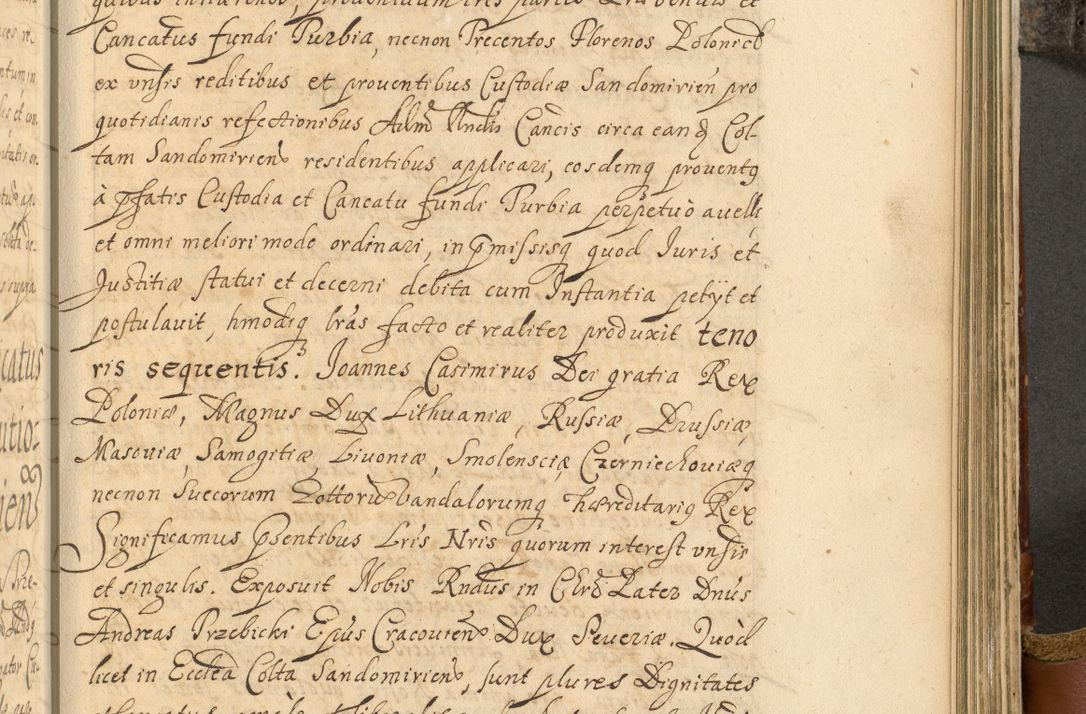 Cancatus fundi Turbia, necnon Trecentos Florenos Polonicos
ex vnsis reditibus et proventibus Custodiæ Sandomirien pro
quotidianis refectionibus Adm Rndis Cancis circa eand Col-
tam Sandomirien residentibus applicari, eosdemq proventq
à pfatis Custodia et Cancatu fundi Turbia perpetuò avelli
et omni meliori mode ordinari, in pmissisq quod Iuris et
Justitiæ statui et decerni debita cum Instantia petijt et
postulavit, hmodiq lras facto et realiter produxit teno
ris sequentis. Joannes Casimirus Dei gratia Rex
Poloniæ, Magnus Dux Lithuaniæ, Russiæ, Prussiæ,
Masoviæ, Samogitiæ, Livoniæ, Smolensciæ Czerniechoviæq
necnon Suecorum Gottoru Vandalorumq hæreditariq Rex
Significamus psentibus Lris Nris quorum interest vnsis
et singulis. Exposuit Nobis Rndus in Chro Pater Dnus
Andreas Trzebicki Epus Cracovien Dux Severiæ. Quod
licet in Ecclea Colta Sandomirien, sunt plures Dignitates